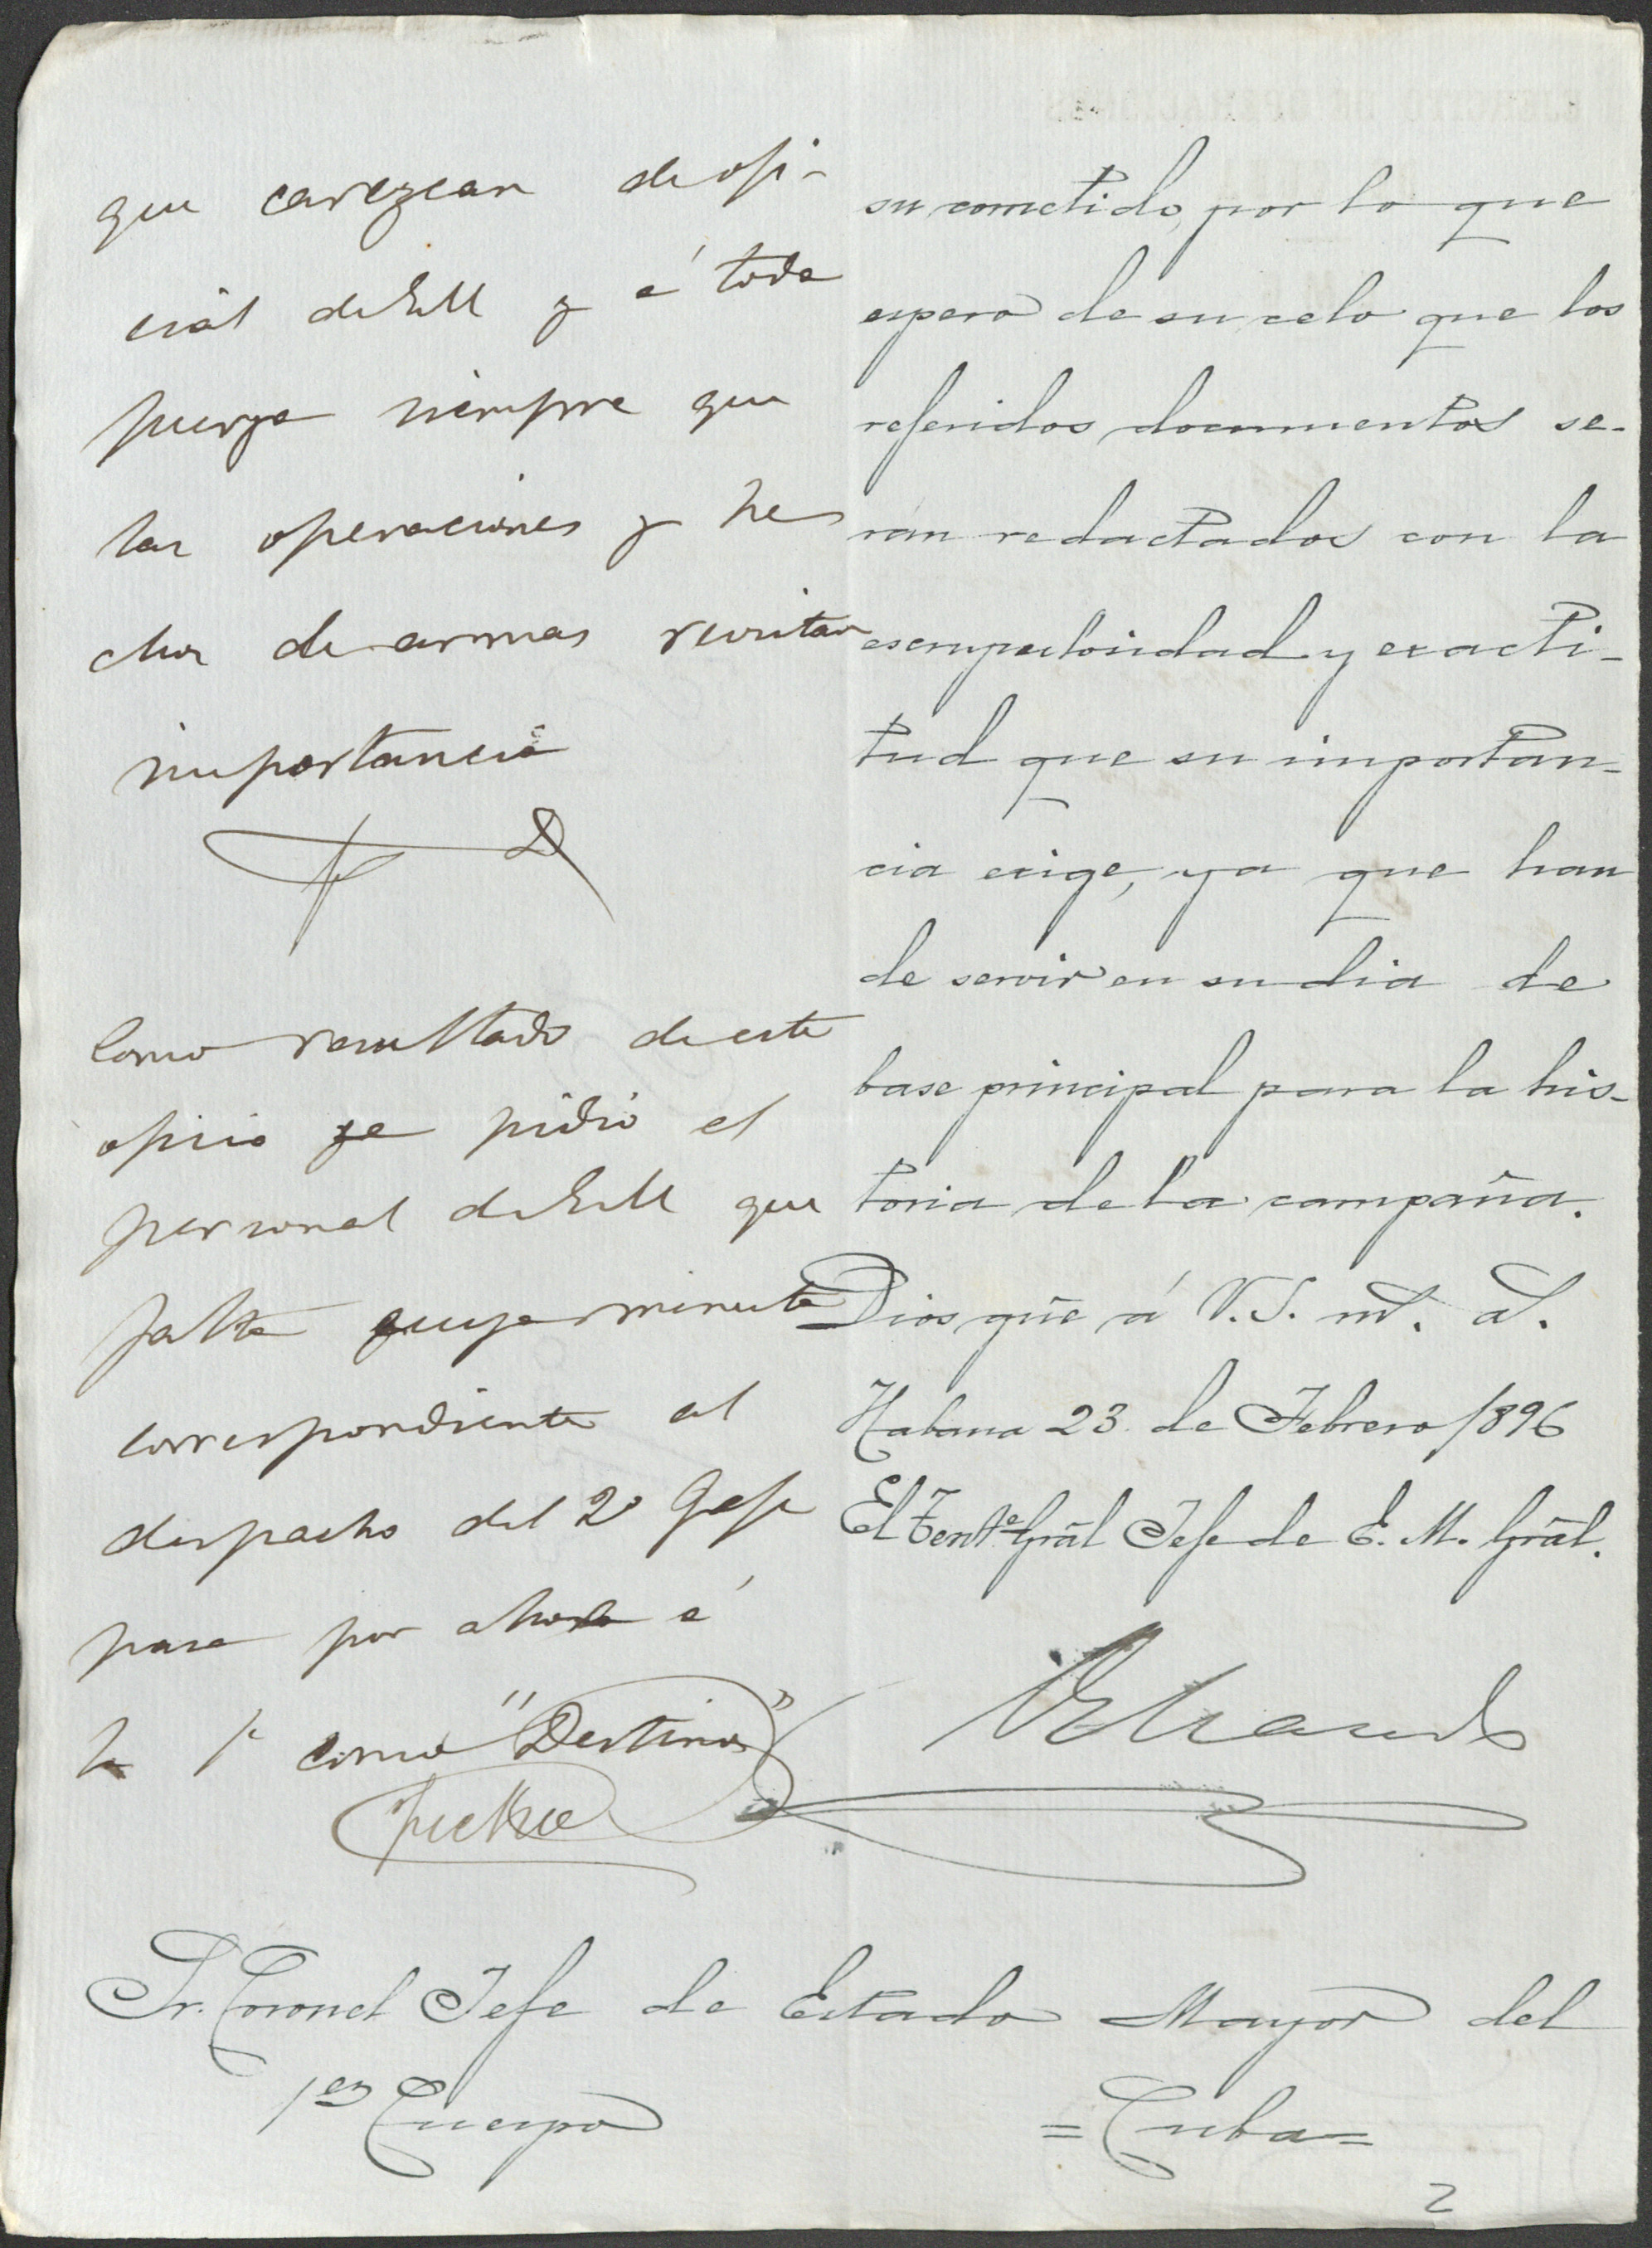 que carezcan de ofi-
cial de EM y á toda
fuerza siempre que
las operaciones y he
chos de armas revistan
importancia
Como resultado de este
oficio se pidió el
personal de EM que
falta cuya minuta
correspondiente al
despacho del 2º Gefe
pasa por ahora á
la 1ª como "Destinos"
su cometido, por lo que
espero de su celo que los
referidos documentos se-
rán redactados con la
escrupulosidad y exacti-
tud que su importan-
cia exige, ya que han
de servir en su dia de
base principal para la his-
toria de la campaña.
Dios gũe á V.S. mˢ. aˢ.
Habana 23 de Febrero 1896
El Tenteᵉ Grãl Jefe de E. M. Grãl.
Sr. Coronel Jefe de Estado Mayor del
1er Cuerpo =Cuba=
2